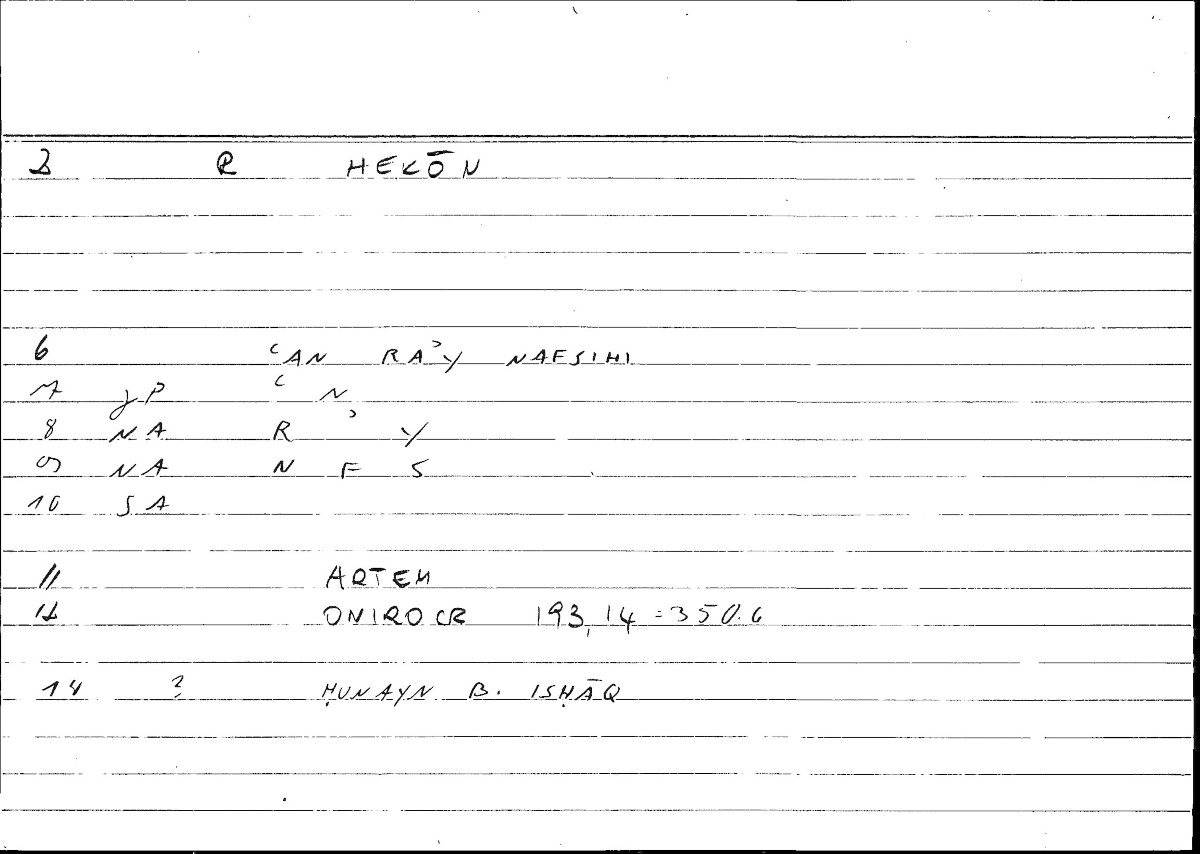 2 R HEKŌN
6 ʿAN RAʾY NAFSIHI
7 JP ʿ N
8 NA R ʾ Y
9 NA N F S
10 SA
11 ARTEM
12 ONIROCR 193,14 = 350.6
14 ? ḤUNAYN B. ISḤĀQ